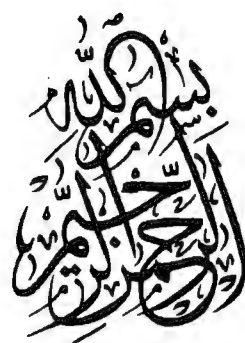 بِسْمِ اللَّهِ
الرَّحْمَٰنِ الرَّحِيمِ